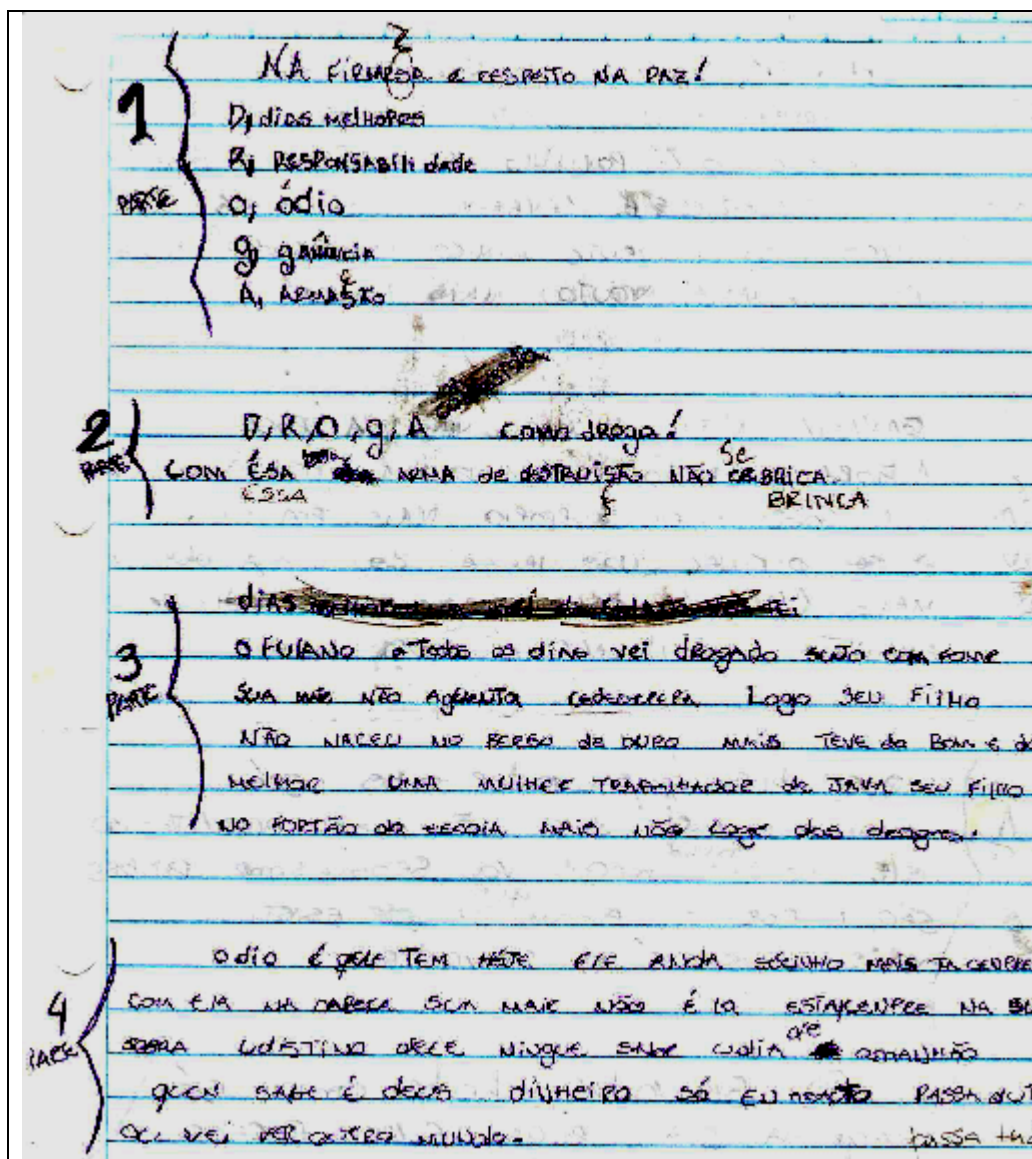 Z
NA FIRMESA e RESPEITO NA PAZ!
1 PARTE
D, dias MELHORES
R, RESPONSABILIdade
O, ódio
g, gAnância
A, ARMAÇÃO
2 PARTE
D, R, O, g, A COMO dROga!
COM ÉSA ARMA de dESTRUISÃO NÃO SE BRICA
ESSA Ç BRINCA
dias
3 PARTE
O FULANO e Todo os dias vei drogado SUJO com FOME
SUA MÃE NÃO AgUENTA Logo SEU FILHO
NÃO NACEU NO BERSO de OURO MAIS TEVE do Bom e do
MELHOR UMA MULHER TRABALHADOR de SEU FILHO
NO PORTÃO da ESCOLA MAIS NÃO LOGE das drogas.
4 PARTE
Odio é TEM ELE ANDA SOSINHO MAIS TA CENPRE
COM ELA NA CABEÇA SUA MAIE NÃO É ESTA CENPRE NA
SOBRA UDISTINO DELE NINGUE SABE UDIA de AMANHÃO
QUEN SABE É DEUS diNHEIRO SÓ EU PASSA
VEI OUTRO MUNDO.
passa